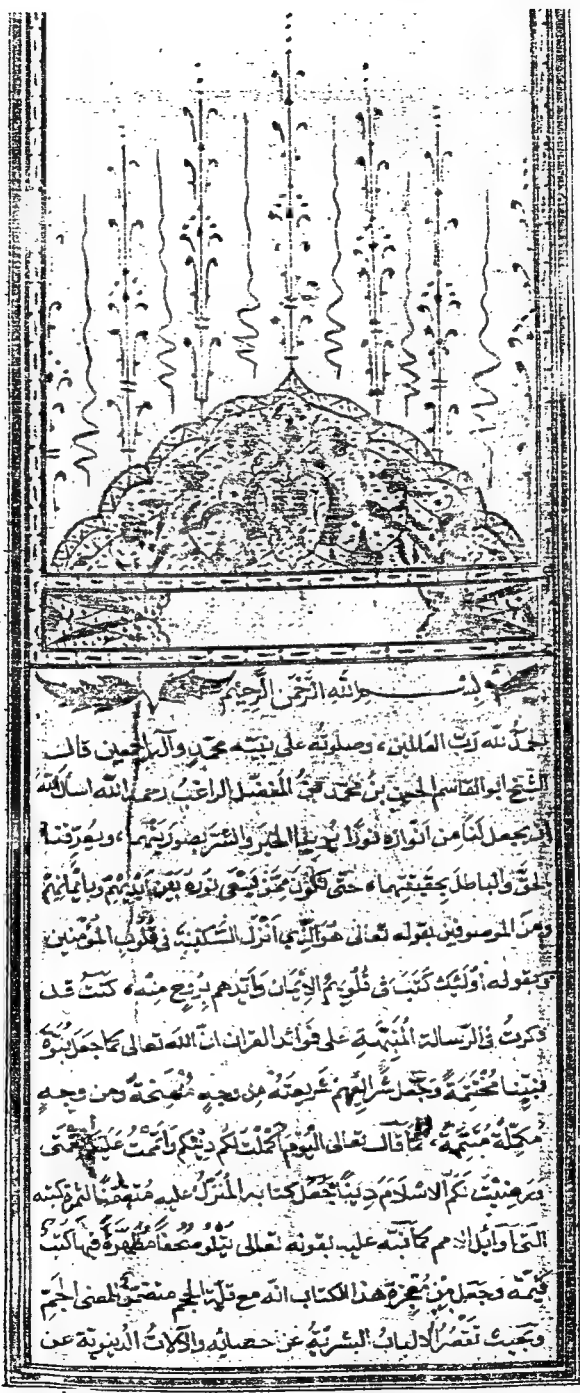 بسم الله الرحمن الرحيم
الحمد لله رب العالمين، وصلوته على نبيه محمد وآله اجمعين قال
الشيخ ابو القاسم الحسين بن محمد بن المفضل الراغب رحمه الله اسأل الله
ان يجعل لنا من انواره نورًا يرينا الخير والشر بصورتيهما، ويعرّفنا
الحقَّ والباطلَ بحقيقتيهما، حتى نكون ممن يسعى نوره بين ايديهم وبأيمانهم
ومن الموصوفين بقوله تعالى هُوَ الَّذي اَنْزَلَ السَّكينَةَ في قُلُوبِ المُؤْمنين
وبقوله اُولَئِكَ كَتَبَ في قُلُوبِهِمُ الاِيمَان وَاَيَّدَهم بِرُوحٍ مِنْه، كنتُ قد
ذكرتُ في الرّسالة المُنَبّهةِ على فوائد القران انّ الله تعالى كما جعل نبوّة
نبيّنا مُخْتَتَمَةً وجَعل شرائعَهم بشريعته من وجهٍ مُنْتَسَخَةً ومن وجهٍ
مكمّلةً مُتَمَّمَةً، كما قال تعالى اليَومَ اَكْمَلْتُ لكُم دينكُم وَاَتْمَمْتُ عَلَيْكُم نِعْمَتى
ورَضِيْتُ لكمُ الاسْلَامَ دِيَنًا جَعَل كتابه المُنَزَّلَ عليه مُتَضَمّنًا لثمرة كتبه
التي اوائل الامم كما نبّه عليه بقوله تعالى يَتْلُو صُحُفًا مُطَهَّرَةً فيها كُتُبٌ
قَيِّمَة وجَعَل مِن مُعجزةِ هذا الكتاب انه مع قلّة الحجم متضمّنٌ للمعنى الجمّ
وبحيث تَقْصُرُ الالبابُ البشريّةُ عن احصائه والآلاتُ الدنيويّة عن